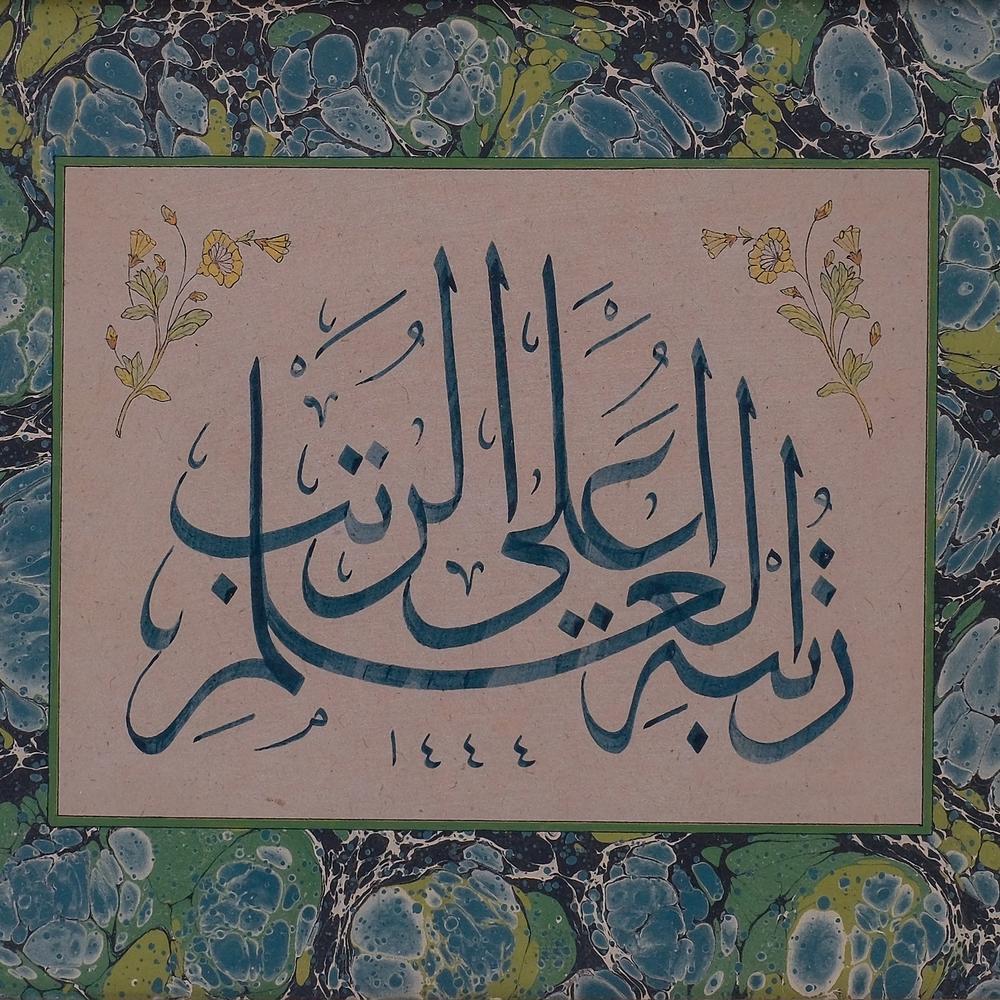 رُتْبَةُ الْعِلْمِ أَعْلَى الرُّتَبِ
١٤٤٤